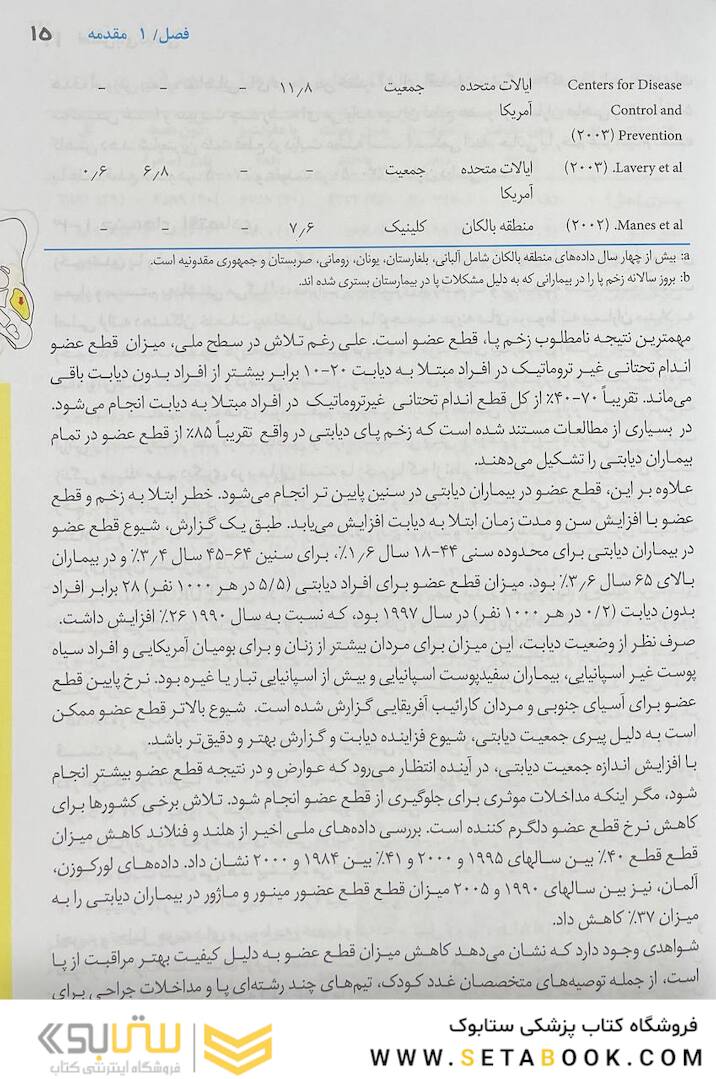 فصل/ ۱ مقدمه ۱۵
Centers for Disease ایالات متحده جمعیت ۱۱٫۸ - - -
Control and آمریکا
Prevention (۲۰۰۳)
Lavery et al. (۲۰۰۳) ایالات متحده جمعیت - - ۶٫۸ ۰٫۶
آمریکا
Manes et al. (۲۰۰۲) منطقه بالکان کلینیک ۷٫۶ - - -
a: بیش از چهار سال داده‌های منطقه بالکان شامل آلبانی، بلغارستان، یونان، رومانی، صربستان و جمهوری مقدونیه است.
b: بروز سالانه زخم پا را در بیمارانی که به دلیل مشکلات پا در بیمارستان بستری شده اند.
مهمترین نتیجه نامطلوب زخم پا، قطع عضو است. علی رغم تلاش در سطح ملی، میزان قطع عضو
اندام تحتانی غیر تروماتیک در افراد مبتلا به دیابت ۲۰-۱۰ برابر بیشتر از افراد بدون دیابت باقی
می‌ماند. تقریباً ۷۰-۴۰٪ از کل قطع اندام تحتانی غیرتروماتیک در افراد مبتلا به دیابت انجام می‌شود.
در بسیاری از مطالعات مستند شده است که زخم پای دیابتی در واقع تقریباً ۸۵٪ از قطع عضو در تمام
بیماران دیابتی را تشکیل می‌دهند.
علاوه بر این، قطع عضو در بیماران دیابتی در سنین پایین تر انجام می‌شود. خطر ابتلا به زخم و قطع
عضو با افزایش سن و مدت زمان ابتلا به دیابت افزایش می‌یابد. طبق یک گزارش، شیوع قطع عضو
در بیماران دیابتی برای محدوده سنی ۴۴-۱۸ سال ۱٫۶٪، برای سنین ۶۴-۴۵ سال ۳٫۴٪ و در بیماران
بالای ۶۵ سال ۳٫۶٪ بود. میزان قطع عضو برای افراد دیابتی (۵/۵ در هر ۱۰۰۰ نفر) ۲۸ برابر افراد
بدون دیابت (۰/۲ در هر ۱۰۰۰ نفر) در سال ۱۹۹۷ بود، که نسبت به سال ۱۹۹۰ ۲۶٪ افزایش داشت.
صرف نظر از وضعیت دیابت، این میزان برای مردان بیشتر از زنان و برای بومیان آمریکایی و افراد سیاه
پوست غیر اسپانیایی، بیماران سفیدپوست اسپانیایی و بیش از اسپانیایی تبار یا غیره بود. نرخ پایین قطع
عضو برای آسیای جنوبی و مردان کارائیب آفریقایی گزارش شده است. شیوع بالاتر قطع عضو ممکن
است به دلیل پیری جمعیت دیابتی، شیوع فزاینده دیابت و گزارش بهتر و دقیق‌تر باشد.
با افزایش اندازه جمعیت دیابتی، در آینده انتظار می‌رود که عوارض و در نتیجه قطع عضو بیشتر انجام
شود، مگر اینکه مداخلات موثری برای جلوگیری از قطع عضو انجام شود. تلاش برخی کشورها برای
کاهش نرخ قطع عضو دلگرم کننده است. بررسی داده‌های ملی اخیر از هلند و فنلاند کاهش میزان
قطع قطع ۴۰٪ بین سالهای ۱۹۹۵ و ۲۰۰۰ و ۴۱٪ بین ۱۹۸۴ و ۲۰۰۰ نشان داد. داده‌های لورکوزن،
آلمان، نیز بین سالهای ۱۹۹۰ و ۲۰۰۵ میزان قطع قطع عضور مینور و ماژور در بیماران دیابتی را به
میزان ۳۷٪ کاهش داد.
شواهدی وجود دارد که نشان می‌دهد کاهش میزان قطع عضو به دلیل کیفیت بهتر مراقبت از پا
است، از جمله توصیه‌های متخصصان غدد کودک، تیم‌های چند رشته‌ای پا و مداخلات جراحی برای
فروشگاه کتاب پزشکی ستابوک
WWW.SETABOOK.COM
ستابوک
فروشگاه اینترنتی کتاب